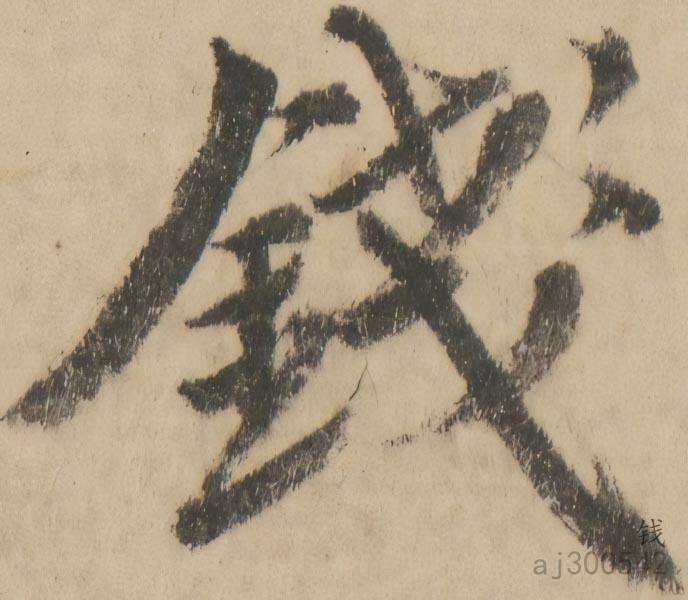 錢
钱
aj300542